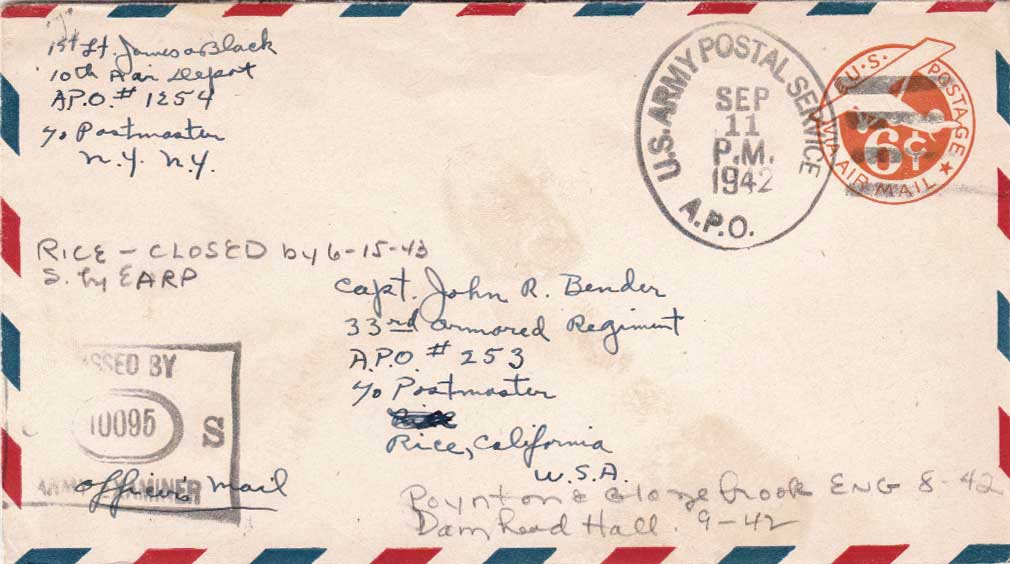 1st Lt. James A Black
10th Air Depot
A.P.O. # 1254
c/o Postmaster
N.Y. N.Y.
U.S. ARMY POSTAL SERVICE
SEP
11
P.M.
1942
A.P.O.
U.S. POSTAGE
6¢
VIA AIR MAIL
RICE - CLOSED by 6-15-43
S. by EARP
Capt. John R. Bender
33rd Armored Regiment
A.P.O. # 253
c/o Postmaster
Rice, California
U.S.A.
PASSED BY
10095
U S
ARMY EXAMINER
Officer's Mail
Poynton & Glazebrook ENG 8-42
Damhead Hall. 9-42